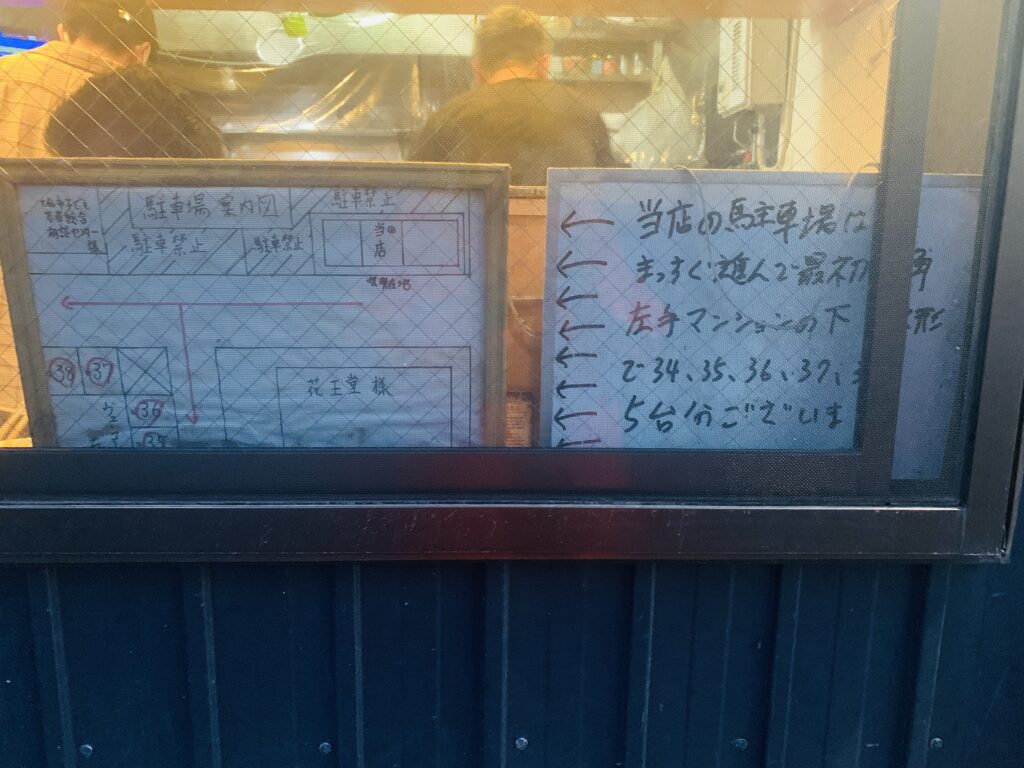 駐車場案内図
駐車禁止
駐車禁止
駐車禁止
当店
現在地
38 37
36
花王堂 様
当店の駐車場は
まっすぐ進んで最初 角
左手マンションの下
で34、35、36、37、
5台分ございま